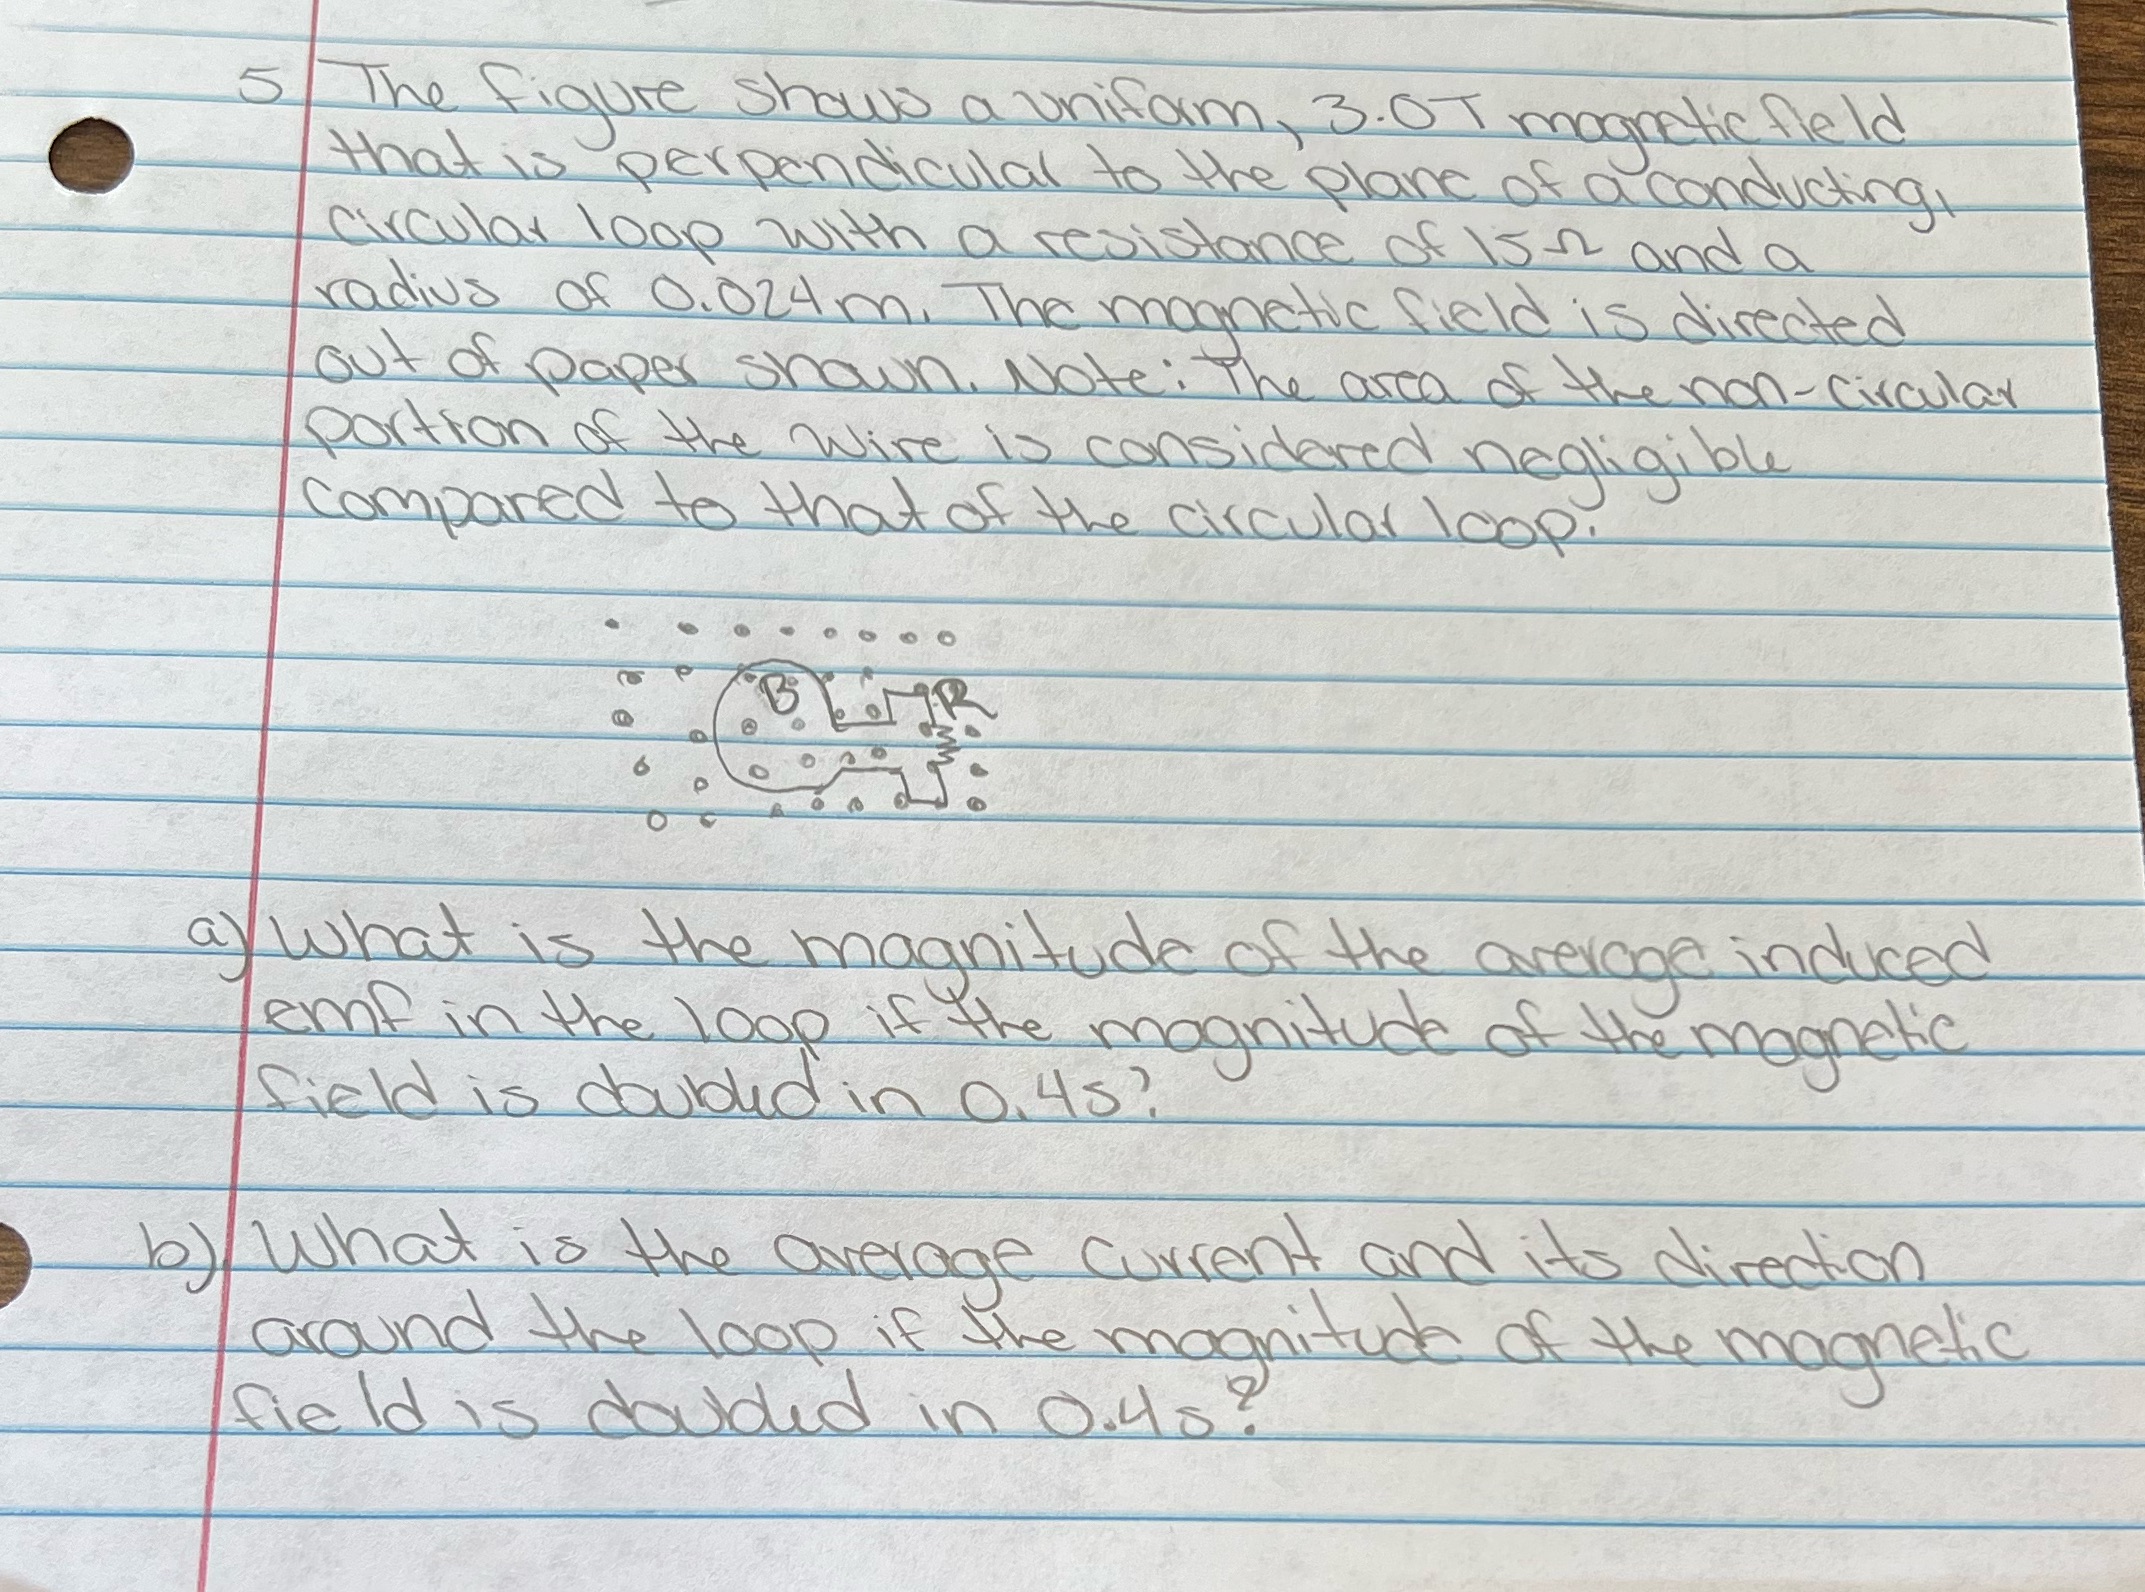 5 The figure shows a uniform, 3.0T magnetic field
that is perpendicular to the plane of a conducting,
circular loop with a resistance of 15Ω and a
radius of 0.024m. The magnetic field is directed
out of paper shown. Note: The area of the non-circular
portion of the wire is considered negligible
compared to that of the circular loop.
B R
a) What is the magnitude of the average induced
emf in the loop if the magnitude of the magnetic
field is doubled in 0.4s?
b) What is the average current and its direction
around the loop if the magnitude of the magnetic
field is doubled in 0.4s?